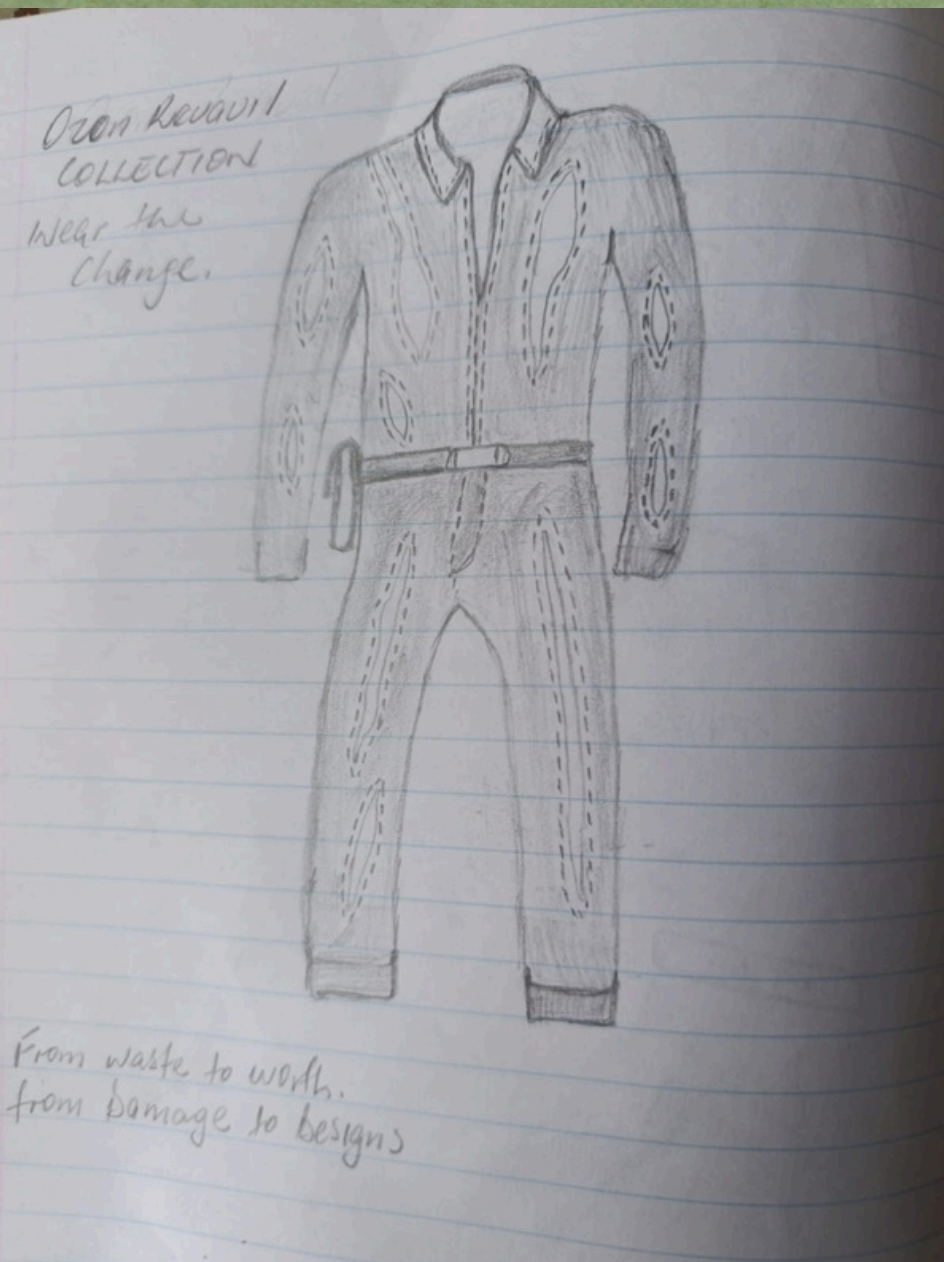 COLLECTION
Wear the
Change.
From waste to worth.
from Damage to Designs